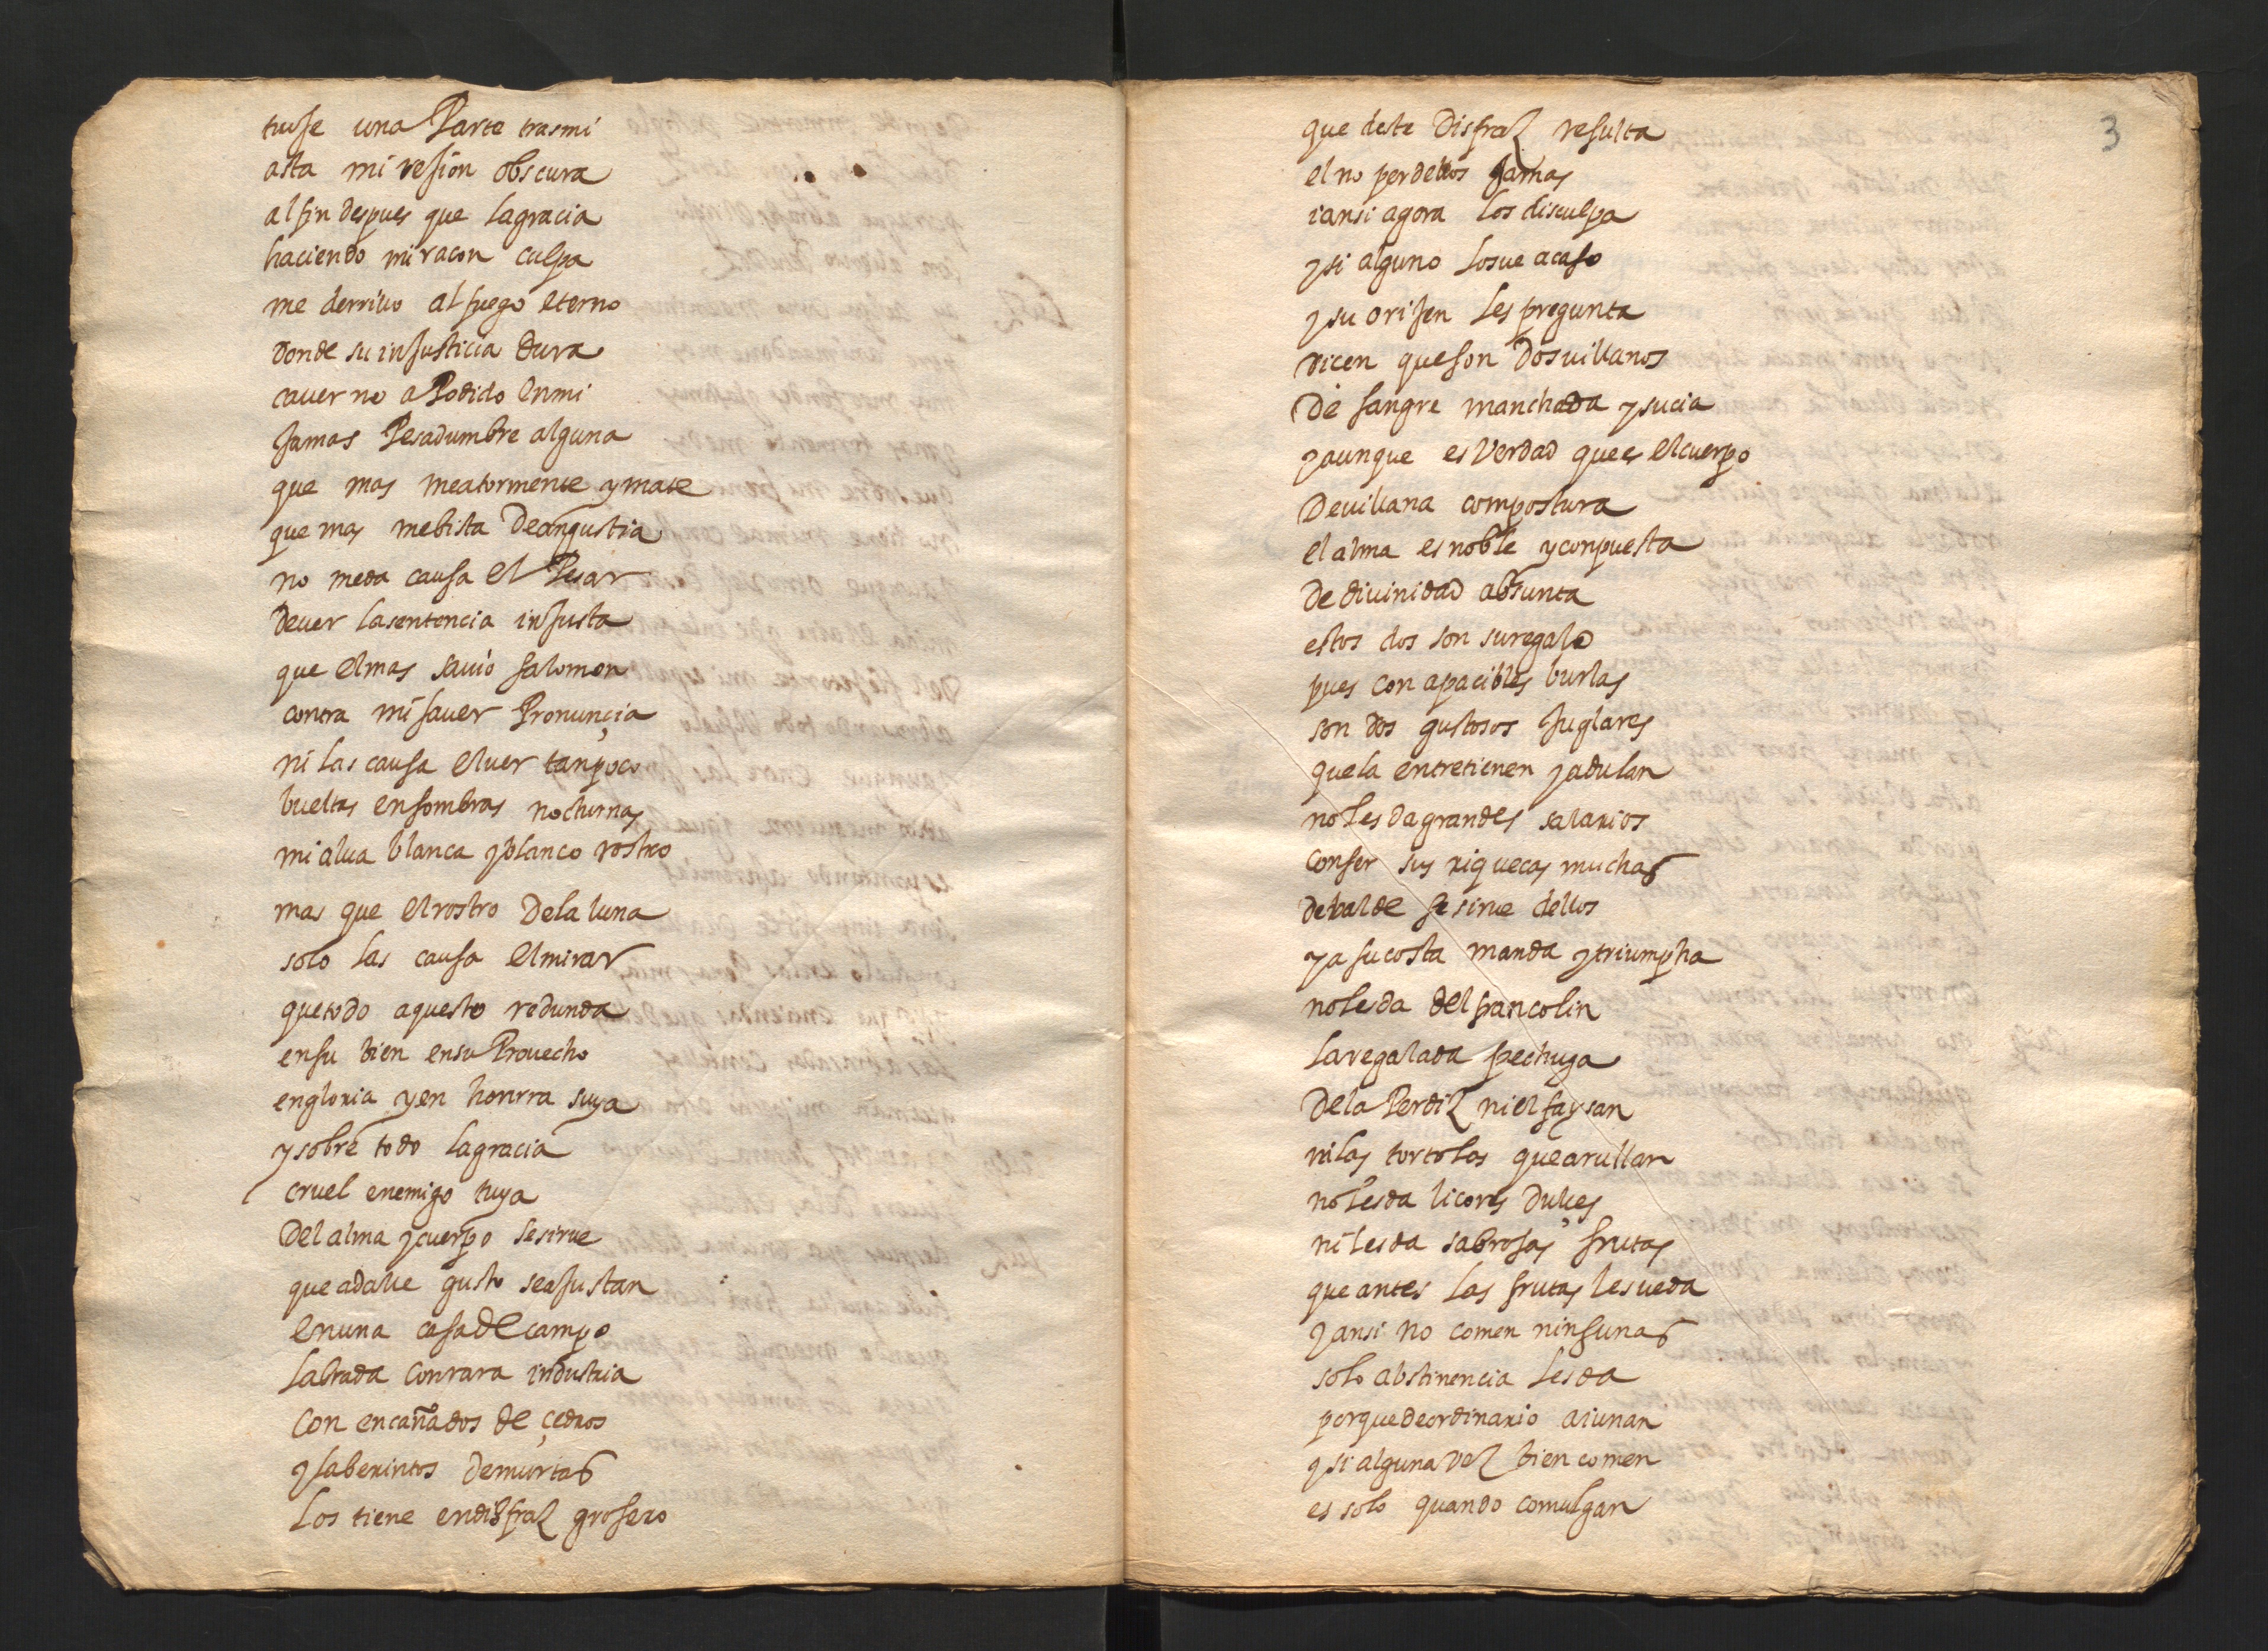 tuvse una Parte trasmi
asta mi resion obscura
al fin despues que lagracia
haciendo mi racon culpa
me derrivo al fuego eterno
donde su injusticia dura
caver no a Podido enmi
jamas Pesadumbre alguna
que mas meatormente ymate
que mas mebista deangustia
no meda causa el Pesar
dever lasentencia injusta
que elmas savio salomon
contra mi saver Pronunçia
ni las causa elver tanpoco
bueltas ensombras nocturnas
mi alva blanca yblanco rostro
mas que elrostro dela luna
solo las causa elmirar
quetodo aquesto redunda
ensu bien ensu Provecho
engloria yen honrra suya
ysobre todo lagracia
cruel enemigo tuya
del alma ycuerpo sesirve
que adalle gusto seajustan
enuna casa de campo
labrada conrara industria
con encañados de çedros
ylaberintos demurtas
los tiene endisfraz grosero
3
que deste disfraz resulta
el no perdellos jamas
iansi agora los disculpa
ysi alguno losve acaso
ysu orijen les pregunta
dicen queson dosvillanos
de sangre manchada ysucia
yaunque es verdad quees elcuerpo
devillana compostura
el alma es noble yconpuesta
de divinidad absunta
estos dos son suregalo
pues con apacibles burlas
son dos gustosos juglares
quela entretienen yadulan
no les dagrandes salarios
conser sus riquecas muchas
debalde se sirve dellos
ya sucosta manda ytriumpha
nolesda del francolin
laregalada pechuga
dela Perdiz niel faysan
nilas tortolas quearullan
nolesda licores dulces
ni lesda sabrosas frutas
que antes las frutas lesveda
yansi no comen ningunas
solo abstinencia lesda
porquedeordinario aiunan
ysi alguna vez bien comen
es solo quando comulgan